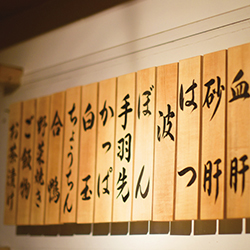 血肝
砂肝
はつ
波
ぼん
手羽先
かっぱ
白玉
ちょうちん
合鴨
野菜焼き
ご飯物
お茶漬け